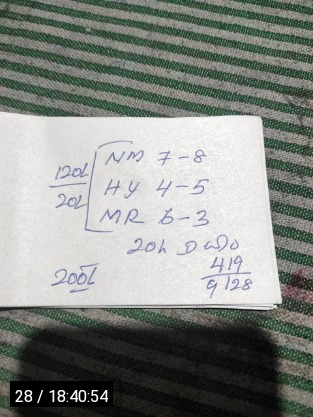 NM 7-8
120L
HY 4-5
20L
MR 6-3
20L D
419
200L
9128
28 / 18:40:54